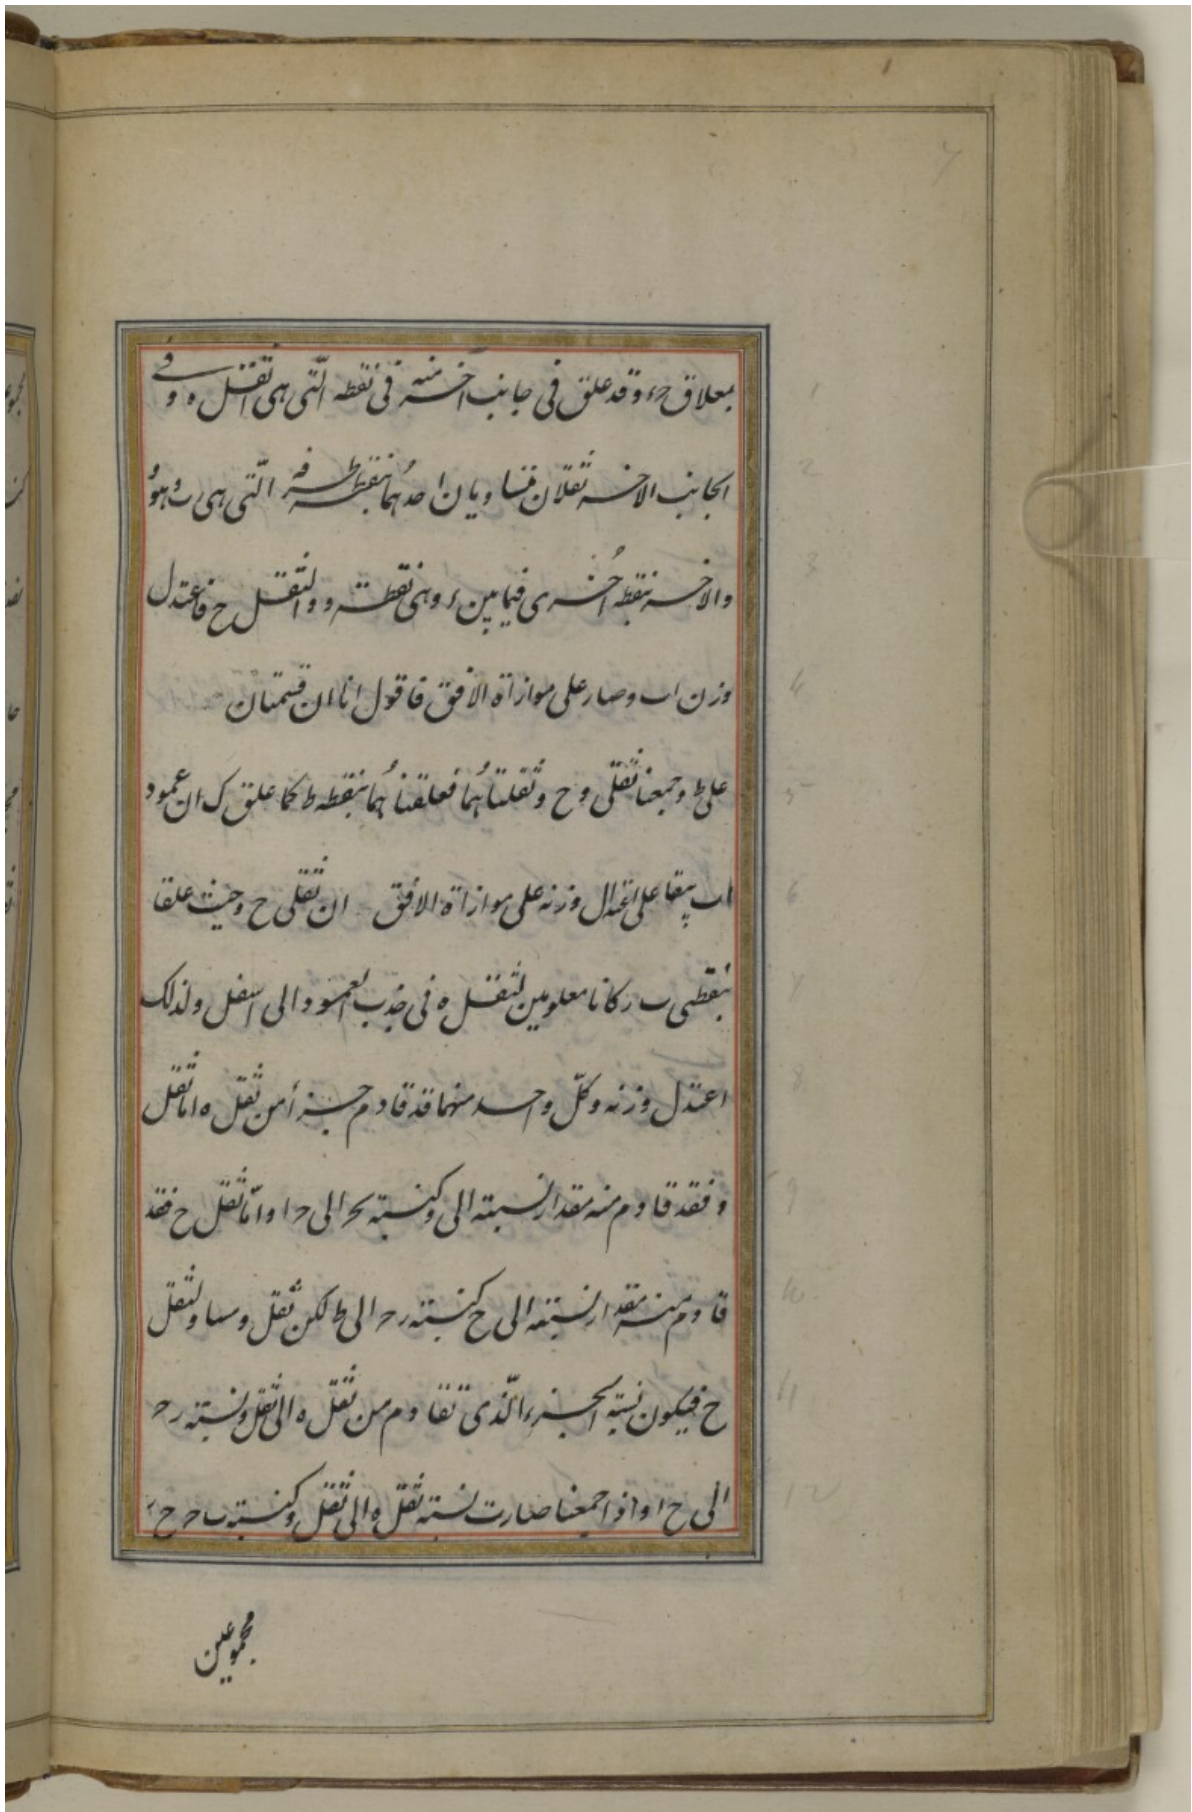 بمعلاق حء وقد علق فی جانب آخر منه فی نقطه الّتی هی ا ثقل ه و فی
الجانب الاخر ثقلان متساویان احدُهُما بنقطة طرفه الّتی هی ب وهو و
والاخر بنقطه اُخری فیما بین وهی نقطة ر والثقل ح فاعتدل
وزن اب وصار علی موازاة الافق فاقول انا ان قسمنا ب
علی ط وجمعنا ثقلی و ح وثقلناهُما فعلقناهُما بنقطه ط کما علق ک ان عمود
اب یبقا علی اعتدال وزنه علی موازاة الافق ان ثقلی ح و حیث علقا
بنقطی ب ر کانا معلومین لثقل ه فی جذب العمود الی اسفل ولذلک
اعتدل وزنه وکلّ واحد منهما قد قاوم جزأ من ثقل ه اما ثقل
و فقد قاوم منه مقدار نسبته الی و کنسبته بح الی ح ا وامّا ثقل ح فقد
قاوم منه مقدار نسبته الی ح کنسبته ر ح الی ط لکن ثقل و مساو لثقل
ح فیکون نسبة الجزء الّذی تقاوم من ثقل ه الی ثقل و نسبته ر ح
الی ح ا واذا جمعنا صارت نسبة ثقل ه الی ثقل و کنسبته ب ح ح ر
مجموعین